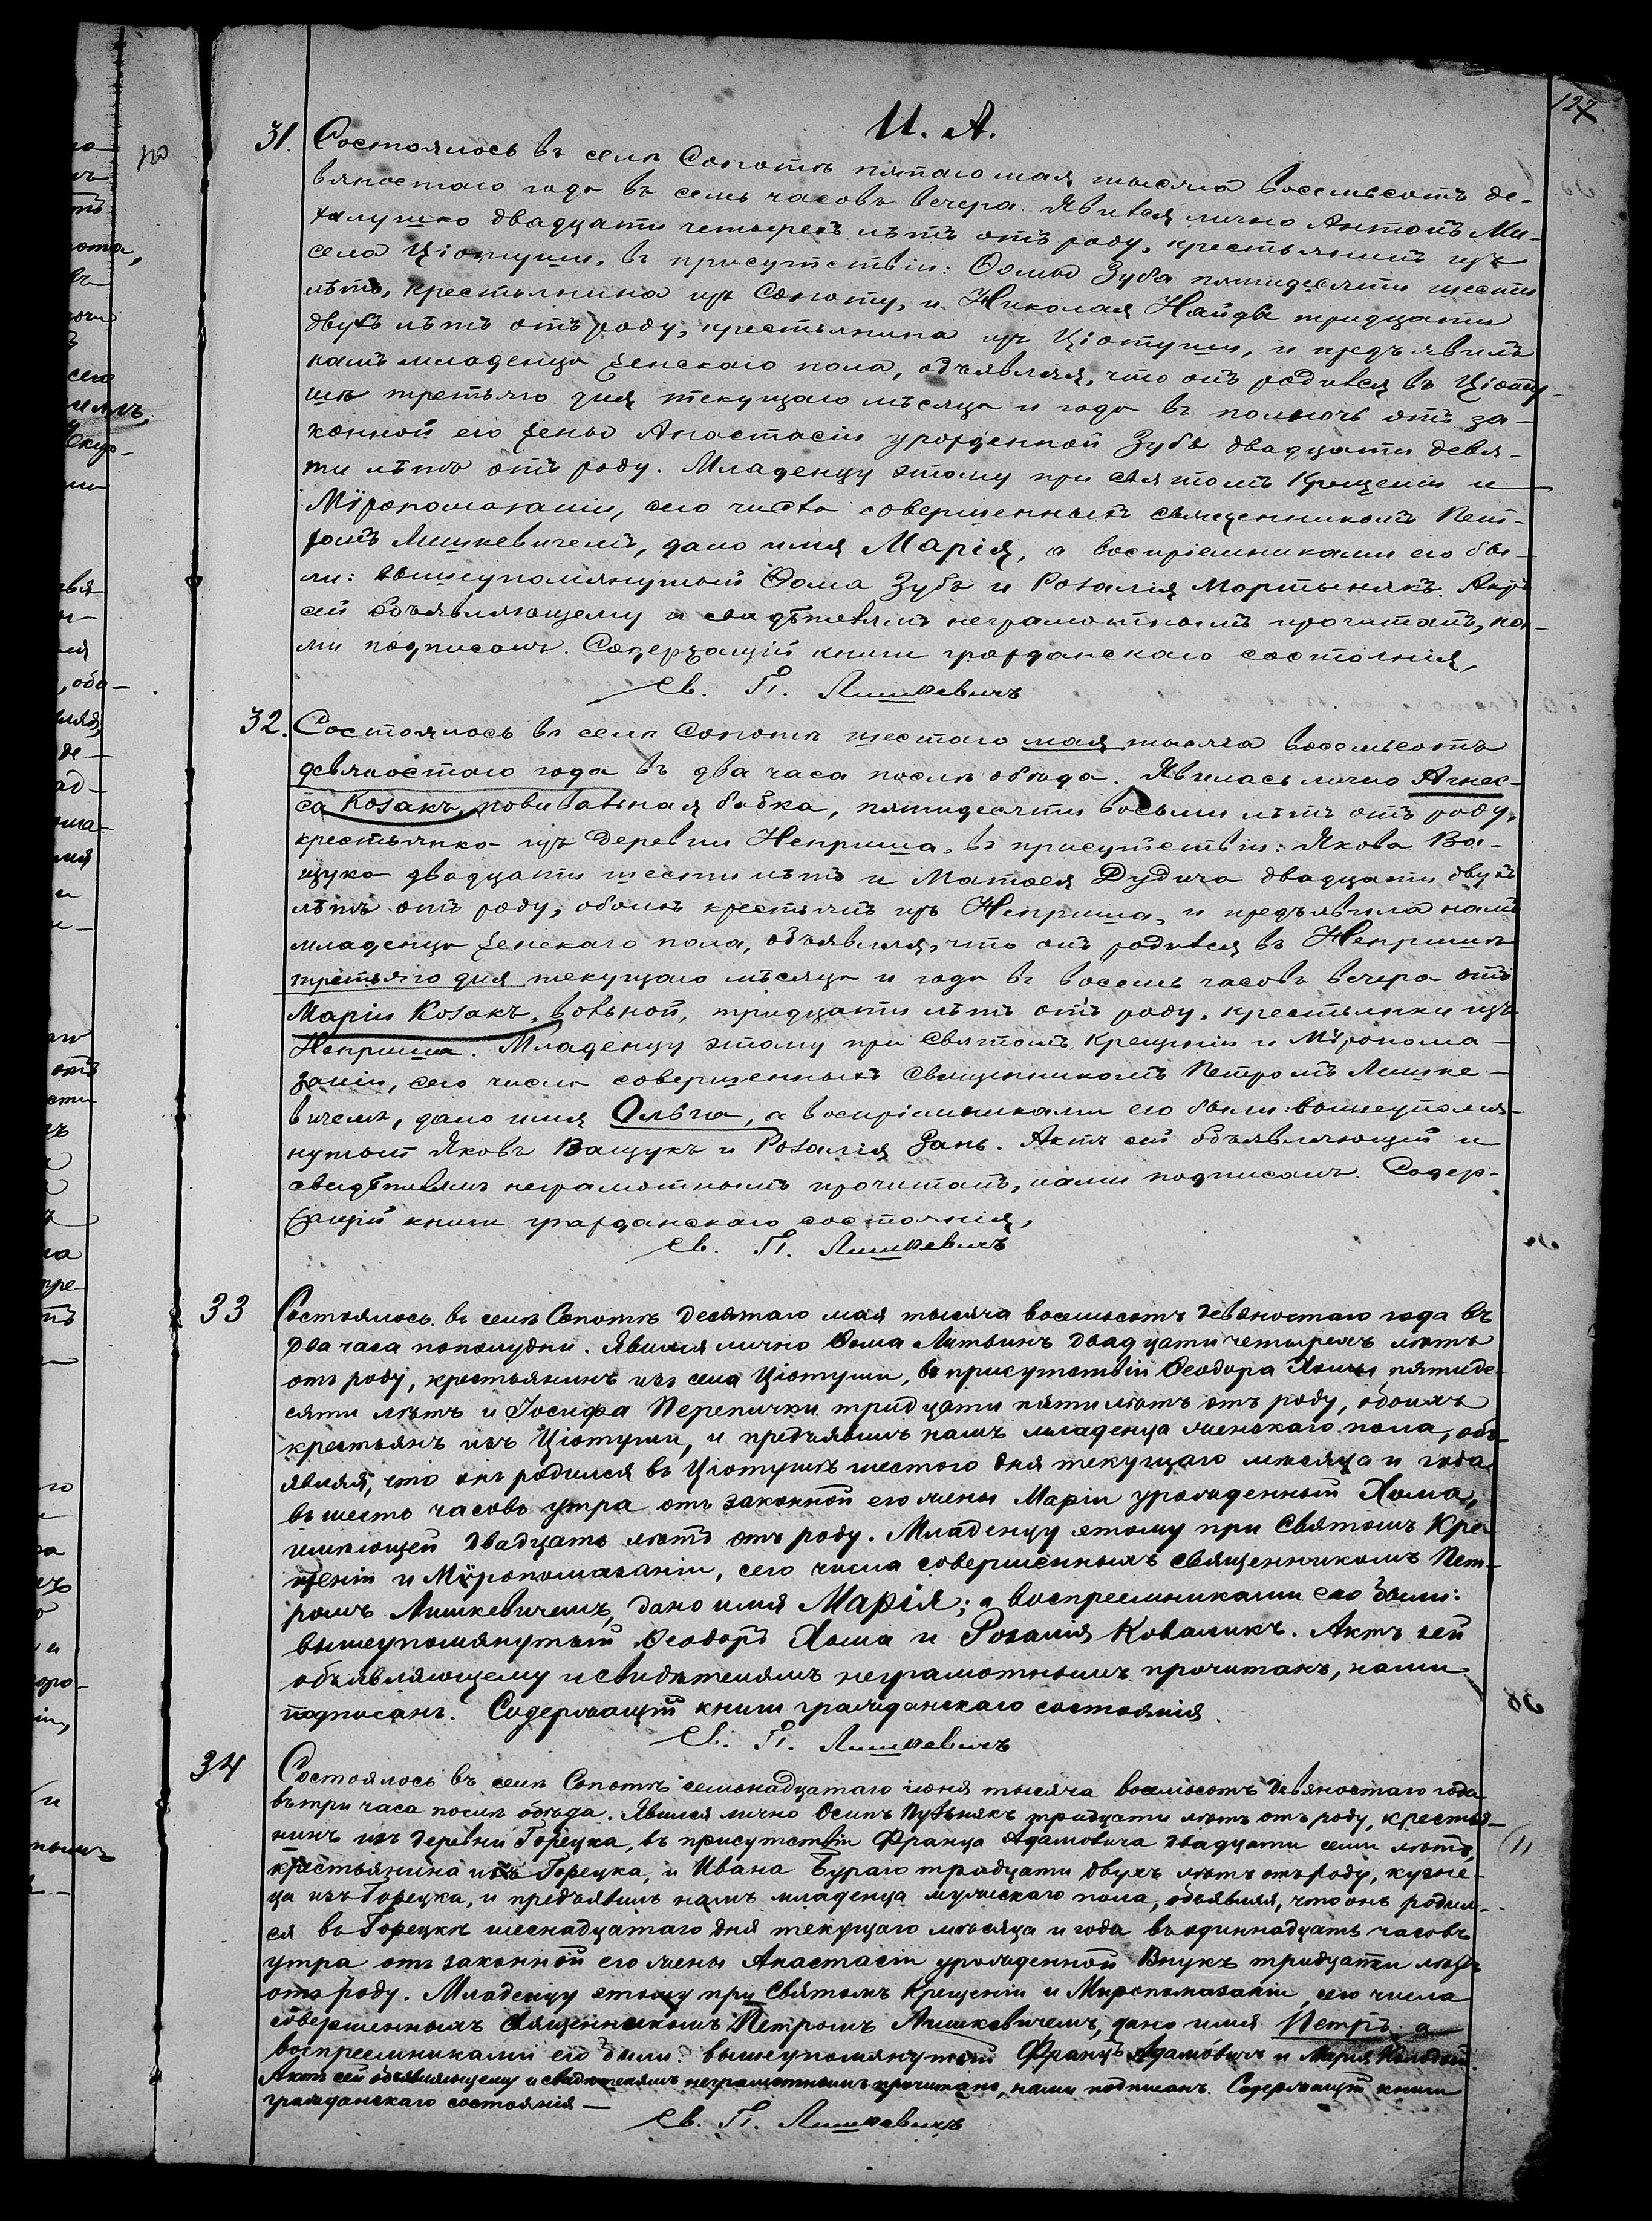 И. А.
127
31. Состоялось въ селѣ Сопотѣ пятаго мая тысяча восемьсотъ де-
вяностаго года въ семь часовъ вечера. Явился лично Антонъ Ми-
халушко двадцати четырехъ лѣтъ отъ роду, крестьянинъ изъ
села Ціотуши, въ присутствіи: Ѳомы Зуба пятидесяти шести
лѣтъ, крестьянина изъ Сопоту, и Николая Найды тридцати
двухъ лѣтъ отъ роду, крестьянина изъ Ціотуши, и предъявилъ
намъ младенца женскаго пола, объявляя, что онъ родился въ Ціоту-
шѣ третьяго дня текущаго мѣсяца и года въ полночь отъ за-
конной его жены Анастасіи урожденной Зубъ двадцати девя-
ти лѣтъ отъ роду. Младенцу этому при святомъ Крещеніи и
Мѵропомазаніи, сего числа совершенныхъ священникомъ Пет-
ромъ Лишкевичемъ, дано имя Марія, а воспріемниками его бы-
ли: вышеупомянутый Ѳома Зубъ и Розалія Мартынякъ. Актъ
сей объявляющему и свидѣтелямъ неграмотнымъ прочитанъ, на-
ми подписанъ. Содержащій книги гражданскаго состоянія,
Св. П. Лишкевичъ
32. Состоялось въ селѣ Сопотѣ шестаго мая тысяча восемьсотъ
девяностаго года въ два часа послѣ обѣда. Явилась лично Агнес-
са Козакъ, повивальная бабка, пятидесяти восьми лѣтъ отъ роду,
крестьянка изъ деревни Неприша, въ присутствіи: Якова Ва-
щука двадцати шести лѣтъ и Матѳея Дудича двадцати двухъ
лѣтъ отъ роду, обоихъ крестьянъ изъ Неприша, и предъявила намъ
младенца женскаго пола, объявляя, что онъ родился въ Непришѣ
третьяго дня текущаго мѣсяца и года въ восемь часовъ вечера отъ
Маріи Козакъ, вольной, тридцати лѣтъ отъ роду, крестьянки изъ
Неприша. Младенцу этому при Святомъ Крещеніи и Мѵропома-
заніи, сего числа совершенныхъ Священникомъ Петромъ Лишке-
вичемъ, дано имя Ольга, а воспріемниками его были: вышеупомя-
нутый Яковъ Ващукъ и Розалія Зань. Актъ сей объявляющей и
свидѣтелямъ неграмотнымъ прочитанъ, нами подписанъ. Содер-
жащій книги гражданскаго состоянія,
Св. П. Лишкевичъ
33 Состоялось въ селѣ Сопотѣ десятаго мая тысяча восемьсотъ девяностаго года въ
два часа пополудни. Явился лично Ѳома Литвинъ двадцати четырехъ лѣтъ
отъ роду, крестьянинъ изъ села Ціотуши, въ присутствіи Ѳеодора Хомы пятиде-
сяти лѣтъ и Іосифа Перепички тридцати пяти лѣтъ отъ роду, обоихъ
крестьянъ изъ Ціотуши, и предъявилъ намъ младенца женскаго пола, объ-
являя, что онъ родился въ Ціотушѣ шестого дня текущаго мѣсяца и года
въ шесть часовъ утра отъ законной его жены Маріи урожденный Хома,
имѣющей двадцать лѣтъ отъ роду. Младенцу этому при Святомъ Кре-
щеніи и Мѵропомазаніи, сего числа совершенныхъ священникомъ Пет-
ромъ Лишкевичемъ, дано имя Марія; а воспреемниками его были:
вышеупомянутый Ѳеодоръ Хома и Розалія Коваликъ. Актъ сей
объявляющему и свидѣтелямъ неграмотнымъ прочитанъ, нами
подписанъ. Содержащій книги гражданскаго состоянія.
Св. П. Лишкевичъ
34 Состоялось въ селѣ Сопотѣ семьнадцатаго іюня тысяча восемьсотъ девяностаго года
въ три часа послѣ обѣда. Явился лично Осипъ тридцати лѣтъ отъ роду, крестья-
нинъ изъ деревни Горецка, въ присутствіи Франца Адамовича двадцати семи лѣтъ,
крестьянина изъ Горецка, и Ивана Бураго тридцати двухъ лѣтъ отъ роду, кузне-
ца изъ Горецка, и предъявилъ намъ младенца мужескаго пола, объявляя, что онъ родил-
ся въ Горецкѣ шеснадцатаго дня текущаго мѣсяца и года въ одиннадцать часовъ
утра отъ законной его жены Анастасіи урожденной Внукъ тридцати лѣтъ
отъ роду. Младенцу этому при Святомъ Крещеніи и Миропомазаніи, сего числа
совершенныхъ Священникомъ Петромъ Лишкевичемъ, дано имя Петръ; а
воспреемниками его были: вышеупомянутый Францъ Адамовичъ и Марія
Актъ сей объявляющему и свидѣтелямъ неграмотнымъ прочитанъ, нами подписанъ. Содержащій книги
гражданскаго состоянія —
Св. П. Лишкевичъ